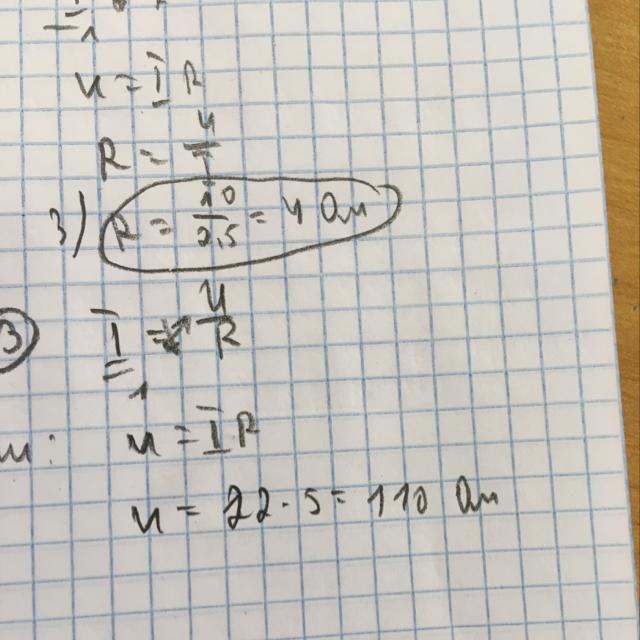 U = I R
R = U/I
3) R = 10/2,5 = 4 Ом
3) I = U/R
1
U = I R
U = 22 · 5 = 110 Ом